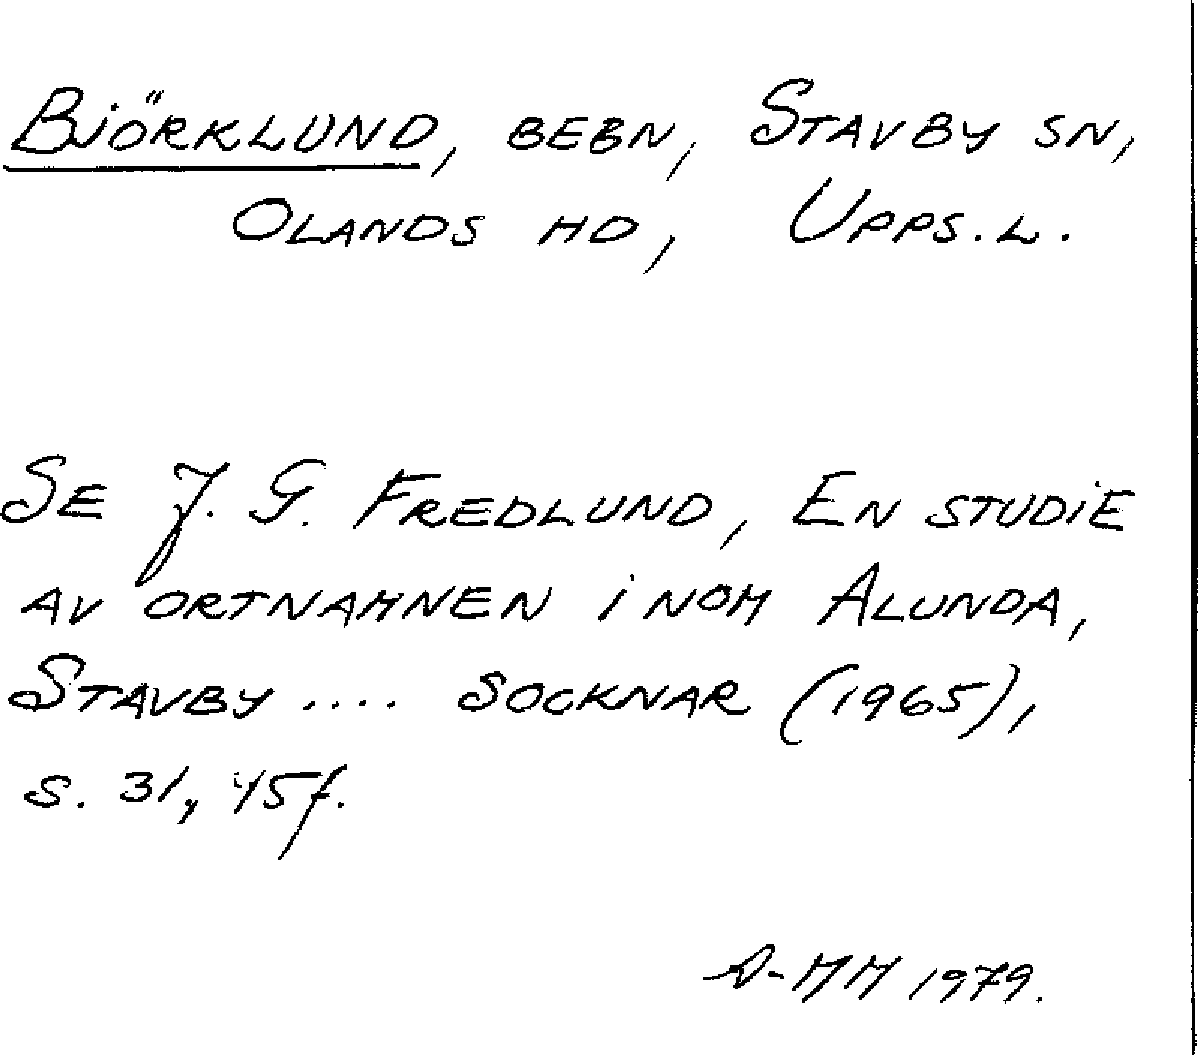 Björklund, bebn, Stavby sn,
Olands hd, Upps.l.
Se J. G. Fredlund, En studie
av ortnamnen inom Alunda,
Stavby .... socknar (1965),
s. 31, 45f.
A-MM 1979.